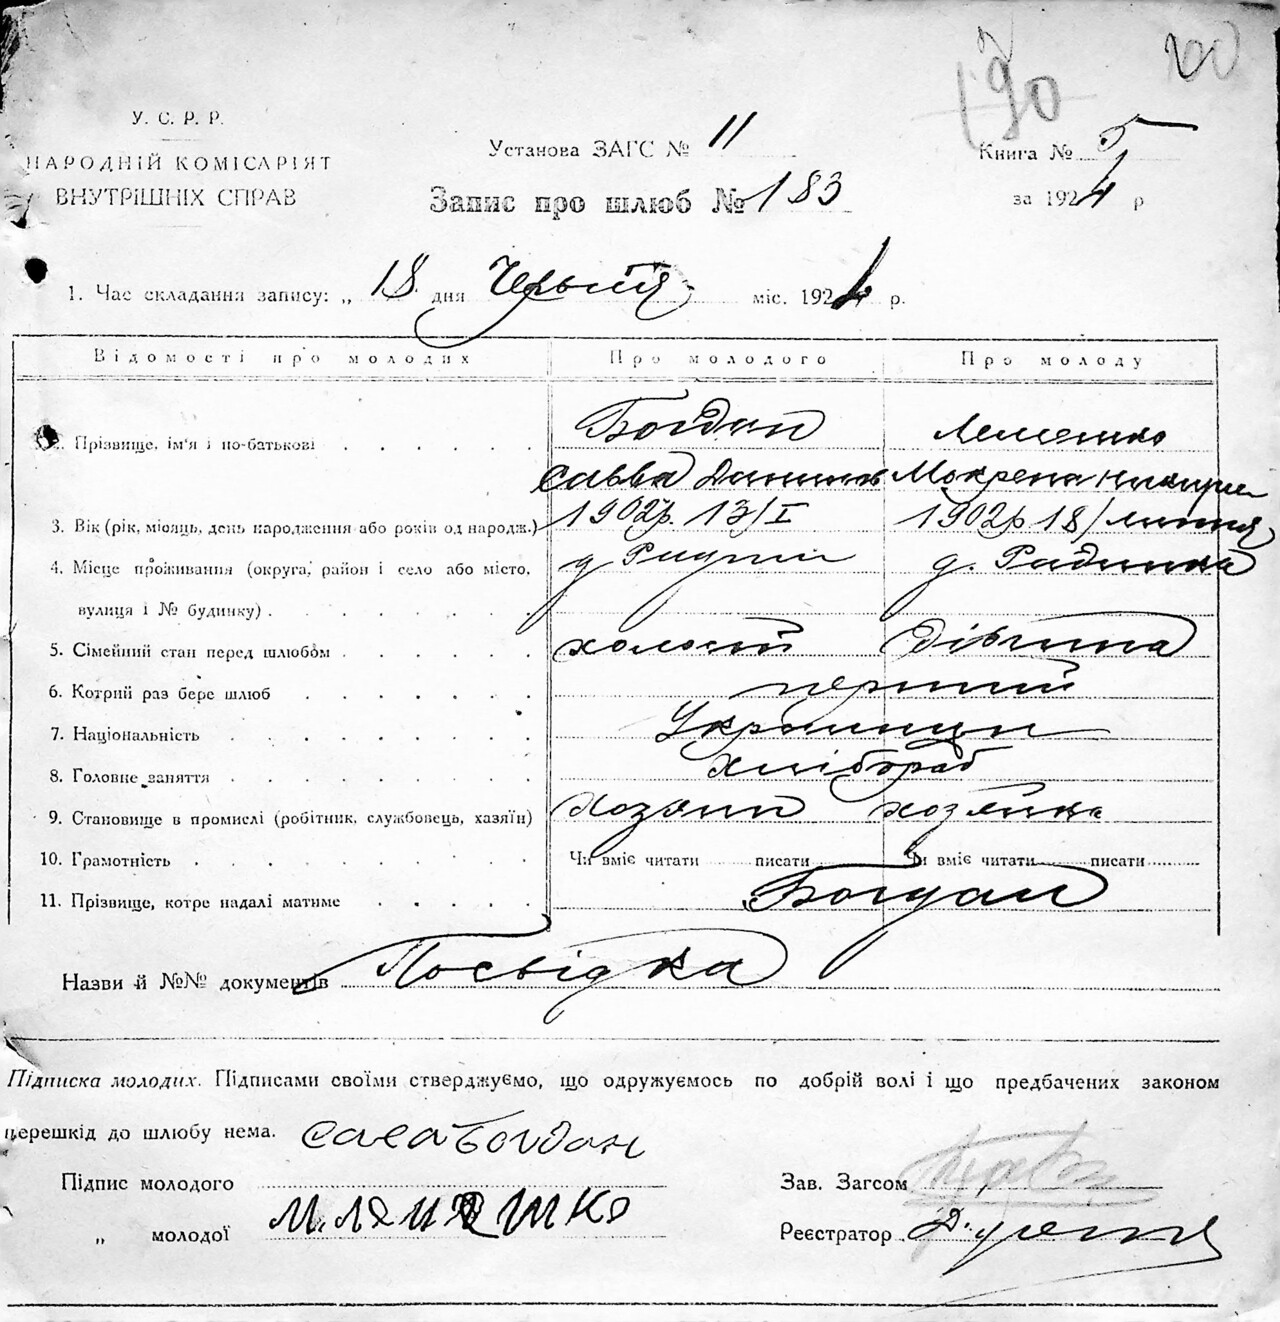 190
200
У. С. Р. Р.
НАРОДНІЙ КОМІСАРІЯТ
ВНУТРІШНІХ СПРАВ
Установа ЗАГС № 11
Книга № 5
Запис про шлюб № 183
за 1924 р
1. Час складання запису: „ 18 дня Червня міс. 1924 р.
Відомості про молодих Про молодого Про молоду
2. Прізвище, ім'я і по-батькові Богдан
Савва Данилов Мокрена
3. Вік (рік, місяць, день народження або років од народж.) 1902р. 13/I 1902р 18/липня
4. Місце проживання (округа, район і село або місто, д. Радинка
вулиця і № будинку)
5. Сімейний стан перед шлюбом холостий дівчина
6. Котрий раз бере шлюб перший
7. Національність Українци
8. Головне заняття Хлібороб
9. Становище в промислі (робітник, службовець, хазяїн) хозяин хозяйка
10. Грамотність Чи вміє читати писати Чи вміє читати писати
11. Прізвище, котре надалі матиме Богдан
Назви й №№ документів Посвідка
Підписка молодих. Підписами своїми стверджуємо, що одружуємось по добрій волі і що предбачених законом
перешкід до шлюбу нема. Сава Богдан
Підпис молодого
Зав. Загсом
„ молодої
Реєстратор